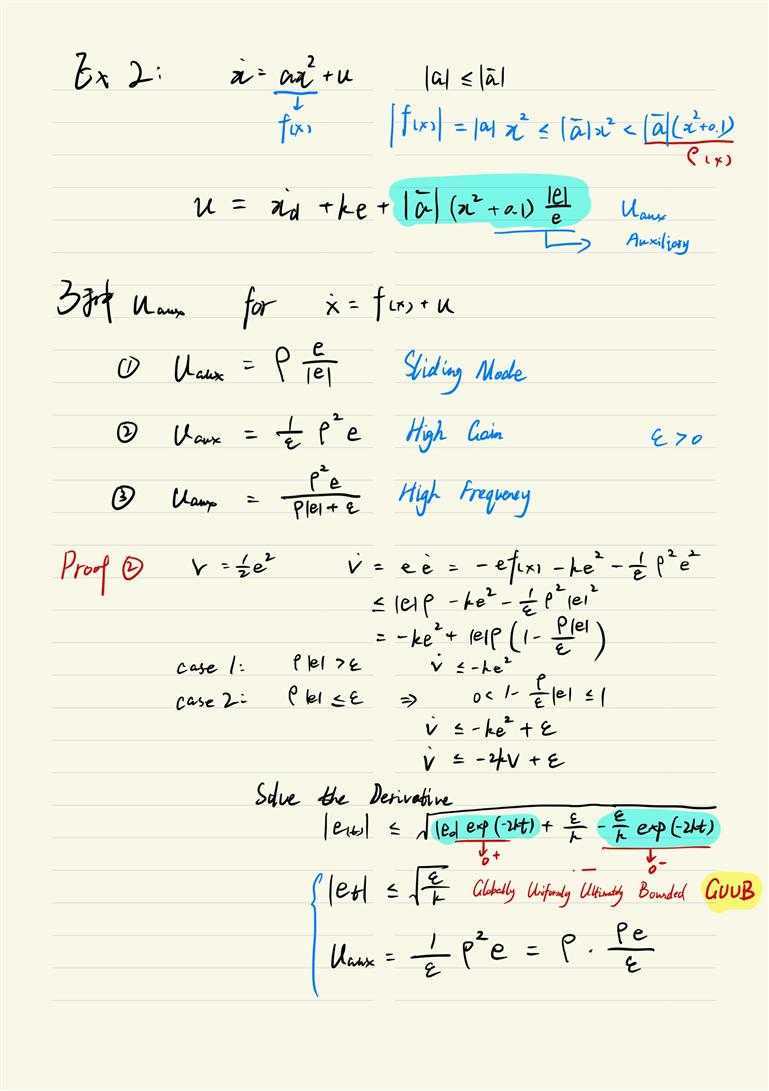 Ex 2: ẋ = ax² + u |a| ≤ |ā|
f(x) |f(x)| = |a| x² ≤ |ā| x² < |ā| (x²+0.1)
ρ(x)
u = ẋd + ke + |ā| (x² + 0.1) |e|/e Uaux
Auxiliary
3种 Uaux for ẋ = f(x) + u
① Uaux = ρ e/|e| Sliding Mode
② Uaux = 1/ε ρ² e High Gain ε > 0
③ Uaux = ρ²e/(ρ|e| + ε) High Frequency
Proof ② V = ½e² V̇ = e ė = -e f(x) - ke² - 1/ε ρ² e²
≤ |e| ρ - ke² - 1/ε ρ² |e|²
= -ke² + |e|ρ (1 - ρ|e|/ε)
case 1: ρ|e| > ε V̇ ≤ -ke²
case 2: ρ|e| ≤ ε ⇒ 0 < 1 - ρ/ε |e| ≤ 1
V̇ ≤ -ke² + ε
V̇ ≤ -2kV + ε
Solve the Derivative
|e(t)| ≤ √(|e₀| exp(-2kt) + ε/k - ε/k exp(-2kt))
0⁺ 0⁻
|et| ≤ √(ε/k) Globally Uniformly Ultimately Bounded GUUB
Uaux = 1/ε ρ² e = ρ · ρe/ε